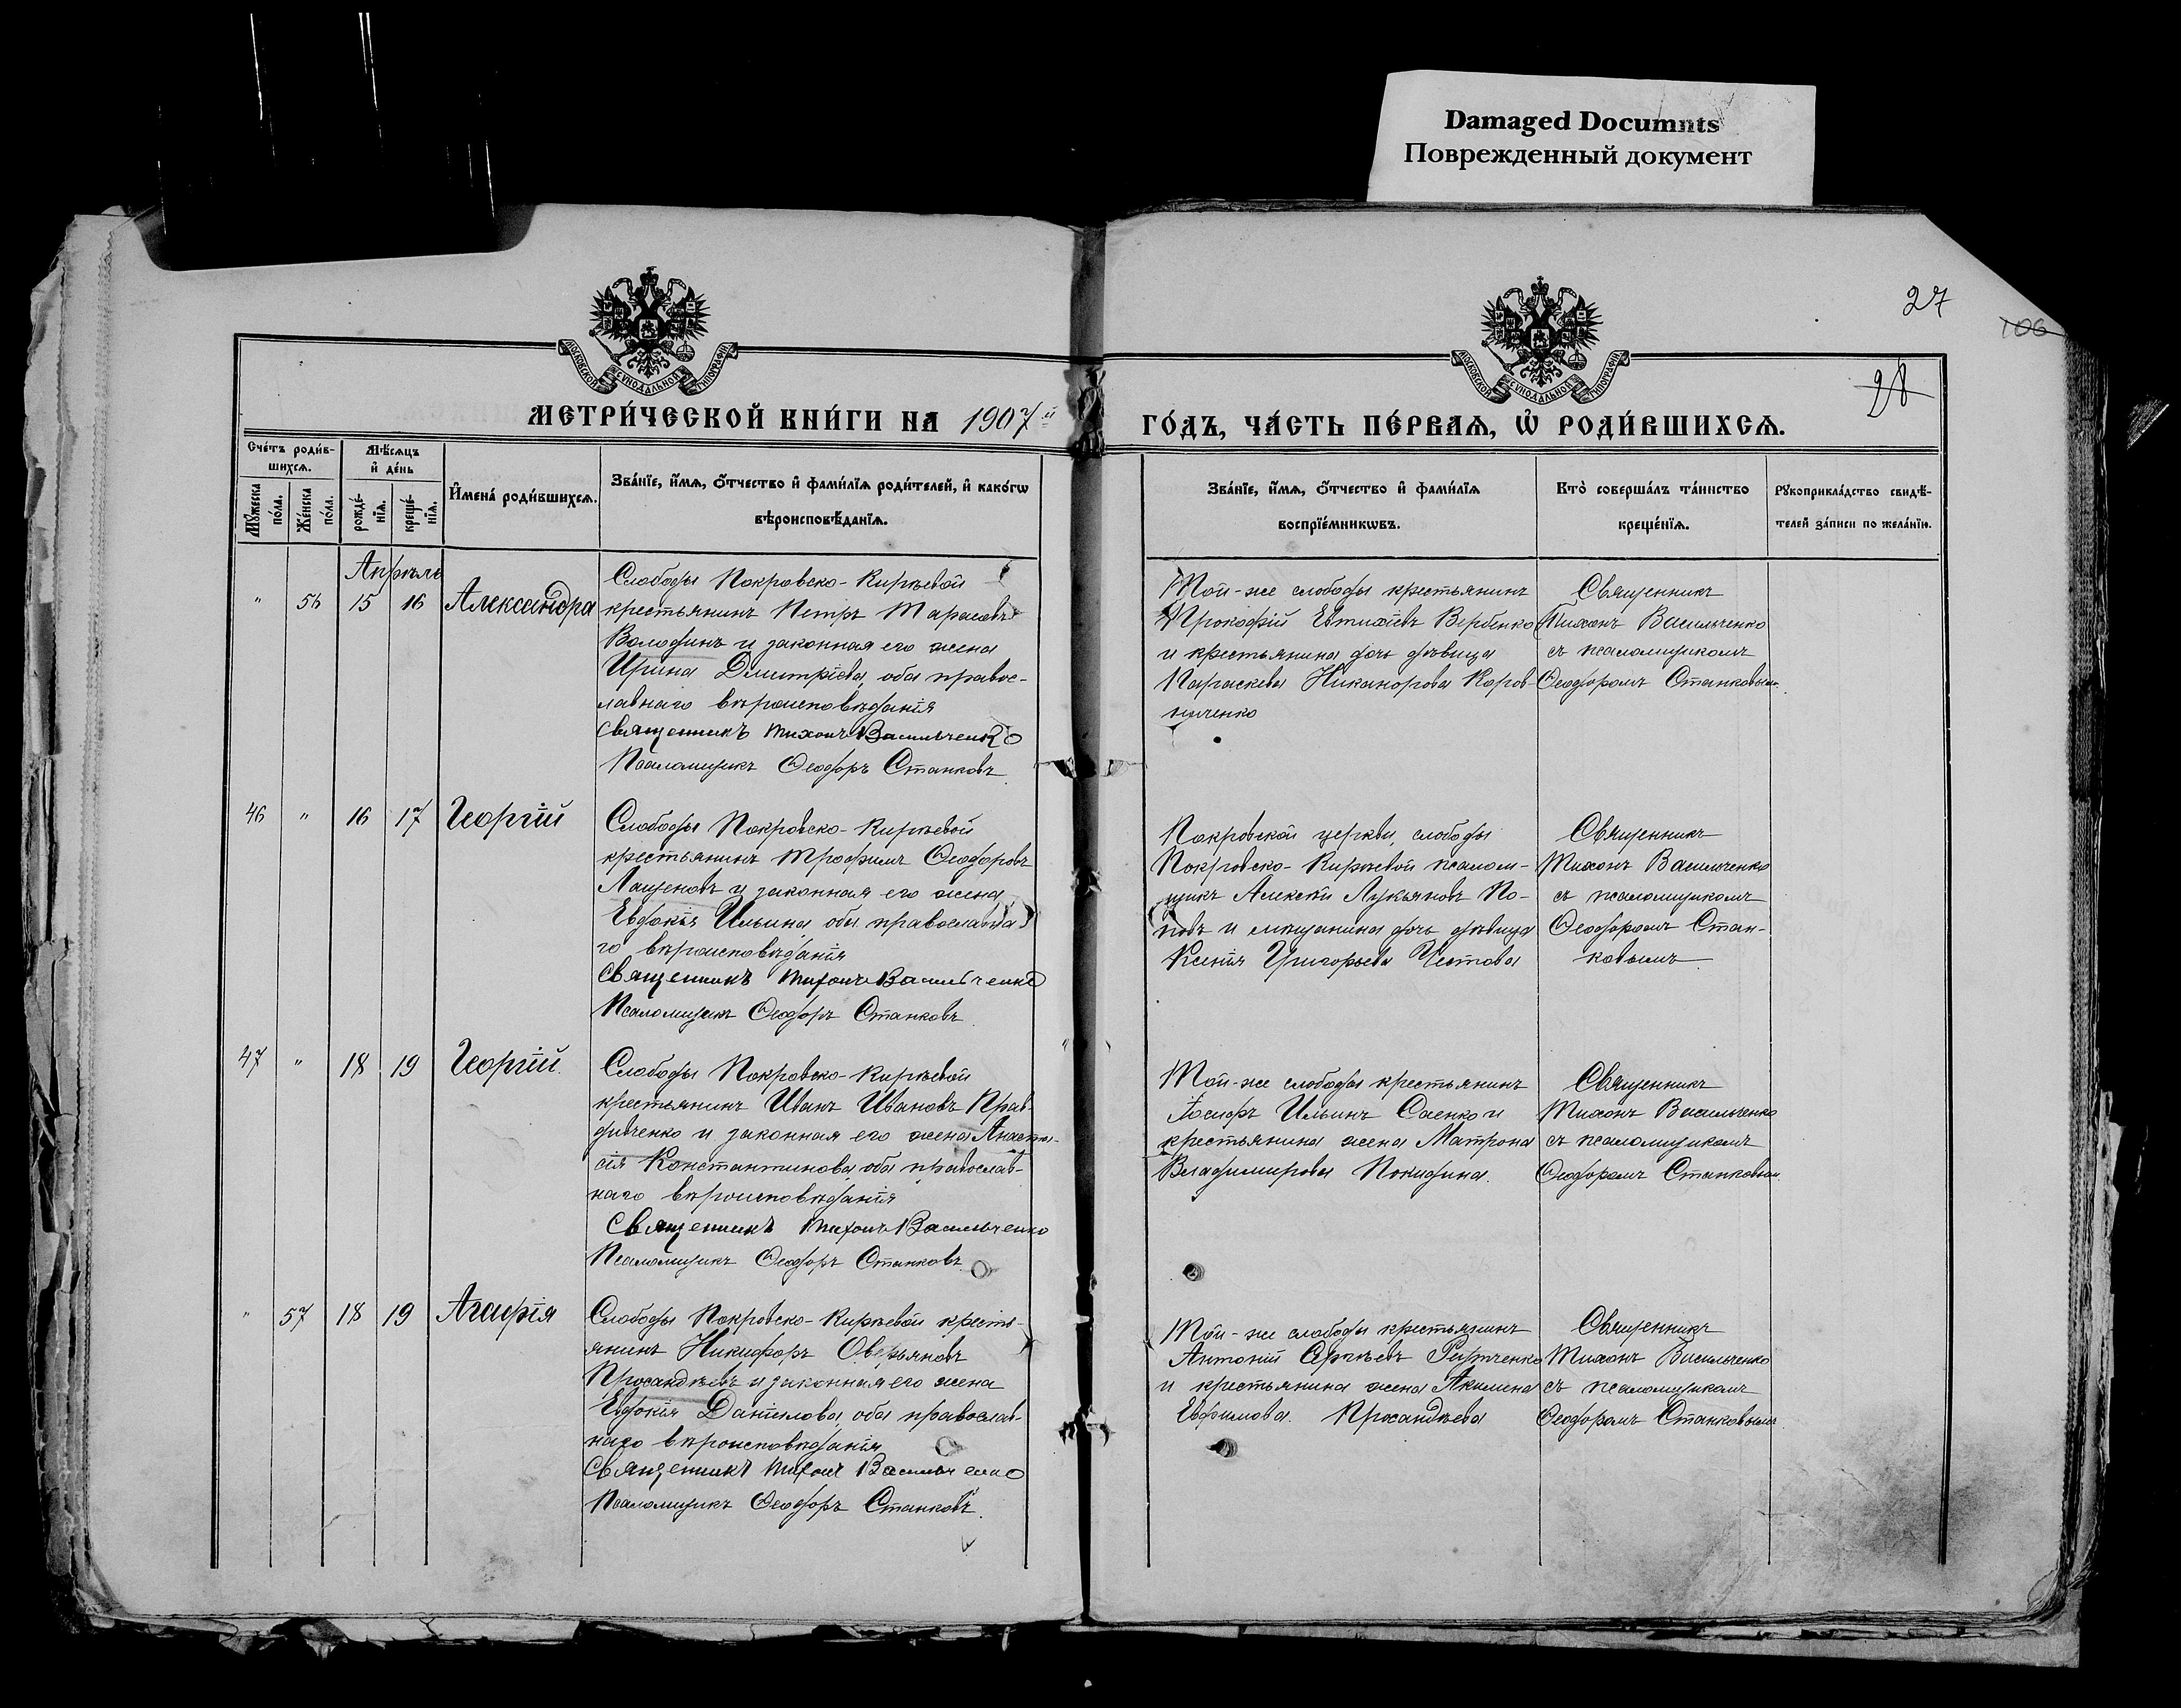 Damaged Documnts
Поврежденный документ
27
106
28
МОСКОВСКОЙ СѴНОДАЛЬНОЙ ТИПОГРАФІИ
МОСКОВСКОЙ СѴНОДАЛЬНОЙ ТИПОГРАФІИ
МЕТРИ́ЧЕСКОЙ КНИ́ГИ НА 1907й
ГО́ДЪ, ЧА́СТЬ ПЕ́РВАѦ, Ѡ҆ РОДИ́ВШИХСѦ.
Сче́тъ роди́в-
шихсѧ.
Мꙋ́жеска по́ла.
Же́нска по́ла.
Мѣ́сѧцъ
и҆ де́нь
рожде́-
нїѧ.
креще́-
нїѧ.
И҆мена̀ роди́вшихсѧ.
Зва́нїе, и҆́мѧ, ѻ҆́тчество и҆ фами́лїѧ роди́телей, и҆ како́гѡ
вѣроисповѣ́данїѧ.
Зва́нїе, и҆́мѧ, ѻ҆́тчество и҆ фами́лїѧ
воспрїе́мникѡвъ.
Кто̀ соверша́лъ та́инство
креще́нїѧ.
Рꙋкоприкла́дство свидѣ́-
телей за́писи по жела́нїю.
Апрѣль
" 56 15 16 Александра
Слободы Покровско-Кирѣевой
крестьянинъ Петръ Тарасовъ
Володинъ и законная его жена
Ирина Димитріева, оба правос-
лавнаго вѣроисповѣданія
Священникъ Тихонъ Васильченко
Псаломщикъ Ѳеодоръ Станковъ
Той-же слободы крестьянинъ
Прокофій Евтихіевъ Вербенко
и крестьянина дочь дѣвица
Параскева Никанорова Коров-
ниченко
Священникъ
Тихонъ Васильченко
съ псаломщикомъ
Ѳеодоромъ Станковым
46 " 16 17 Георгій
Слободы Покровско-Кирѣевой
крестьянинъ Трофимъ Ѳеодоровъ
Лащеновъ и законная его жена
Евдокія Ильина, оба православна
го вѣроисповѣданія
Священникъ Тихонъ Васильченко
Псаломщикъ Ѳеодоръ Станковъ
Покровской церкви, слободы
Покровско-Кирѣевой псалом-
щикъ Алексѣй Лукьяновъ По-
повъ и мѣщанина дочь дѣвица
Ксенія Григорьева Честова
Священникъ
Тихонъ Васильченко
съ псаломщикомъ
Ѳеодоромъ Стан-
ковымъ
47 " 18 19 Георгій
Слободы Покровско-Кирѣевой
крестьянинъ Иванъ Ивановъ Прав-
дивченко и законная его жена Анаста-
сія Константинова, оба православ-
наго вѣроисповѣданія
Священникъ Тихонъ Васильченко
Псаломщикъ Ѳеодоръ Станковъ
Той-же слободы крестьянинъ
Іосифъ Ильинъ Саенко и
крестьянина жена Матрона
Владимирова Покидина.
Священникъ
Тихонъ Васильченко
съ псаломщикомъ
Ѳеодоромъ Станковым.
" 57 18 19 Агафія
Слободы Покровско-Кирѣевой кресть-
янинъ Никифоръ Оверьяновъ
Просандѣевъ и законная его жена
Евдокія Данилова, оба православ-
наго вѣроисповѣданія
Священникъ Тихонъ Васильченко
Псаломщикъ Ѳеодоръ Станковъ.
Той-же слободы крестьянинъ
Антоній Сергѣевъ
и крестьянина жена Акилина
Евфимова Просандѣева
Священникъ
Тихонъ Васильченко
съ псаломщикомъ
Ѳеодоромъ Станковымъ